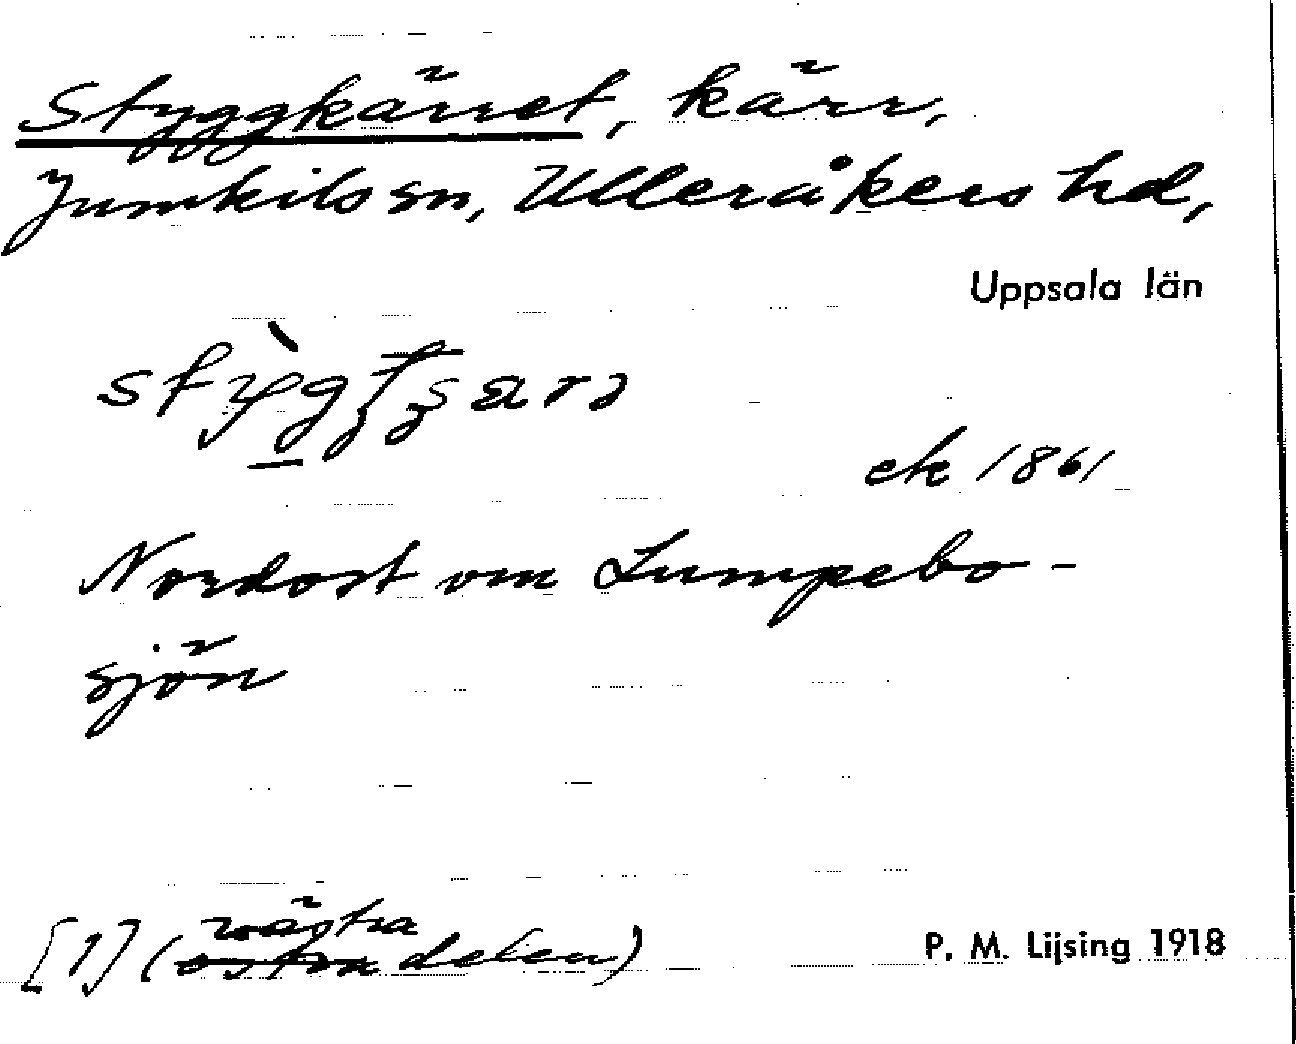 Styggkärret, kärr,
Jumkils sn, Ulleråkers hd,
Uppsala län
ek 1861
Nordost om Lumpebo-
sjön
västra
[1] (östra delen)
P. M. Lijsing 1918